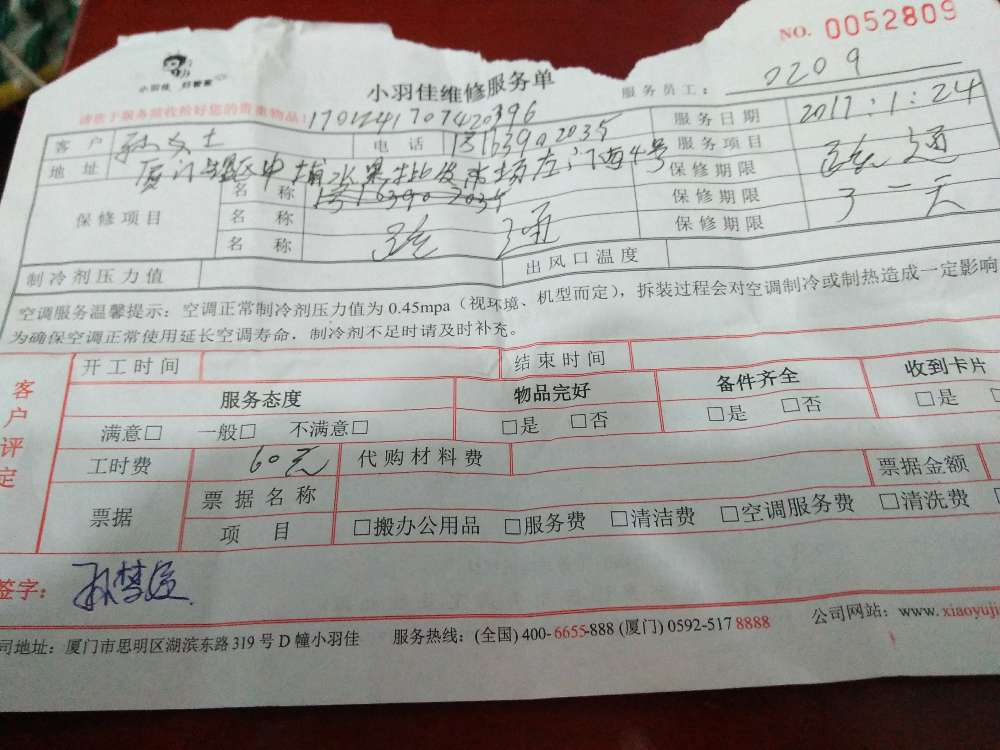 NO. 0052809
小羽佳 好管家
小羽佳维修服务单
服务员工： 0209
请您于服务前收检好您的贵重物品！ 1701241707420396
客户 孙女士 电话 18153902035 服务日期 2017.1.24
地址 厦门 中埔水果批发市场 4号 服务项目 疏通
保修项目 名称 保修期限
名称 疏通 保修期限 一天
名称 保修期限
制冷剂压力值 出风口温度
空调服务温馨提示：空调正常制冷剂压力值为 0.45mpa（视环境、机型而定），拆装过程会对空调制冷或制热造成一定影响
为确保空调正常使用延长空调寿命．制冷剂不足时请及时补充。
客户评定 开工时间 结束时间
服务态度 物品完好 备件齐全 收到卡片
满意□ 一般□ 不满意□ □是 □否 □是 □否 □是
工时费 60元 代购材料费 票据金额
票据 票据名称
项目 □搬办公用品 □服务费 □清洁费 □空调服务费 □清洗费
签字： 孙梦
司地址：厦门市思明区湖滨东路 319 号 D 幢小羽佳 服务热线：(全国) 400-6655-888 (厦门) 0592-517 8888 公司网站：www.xiaoyuji